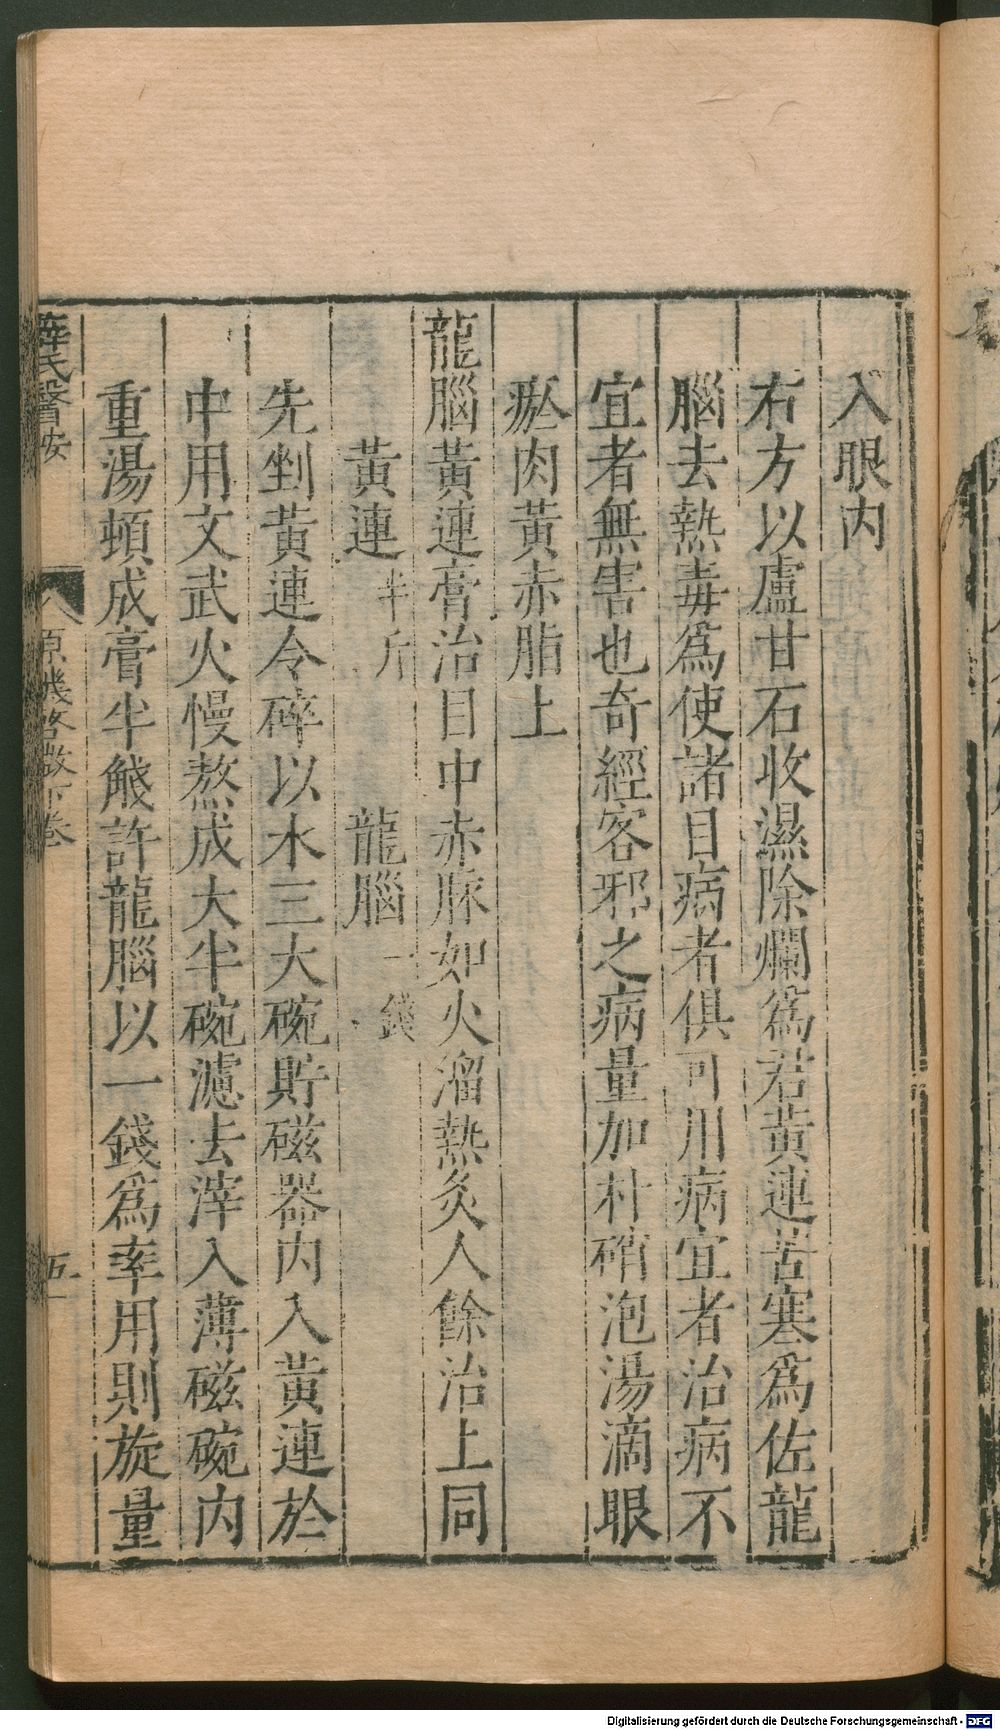 入眼內
右方以盧甘石收濕除爛爲君黃連苦寒爲佐龍
腦去熱毒爲使諸目病者俱可用病宜者治病不
宜者無害也奇經客邪之病量加朴硝泡湯滴眼
瘀肉黃赤脂上
龍腦黃連膏治目中赤脉如火溜熱灸人餘治上同
黃連半斤 龍腦一錢
先剉黃連令碎以水三大碗貯磁器內入黃連於
中用文武火慢熬成大半碗濾去滓入薄磁碗內
重湯頓成膏半盞許龍腦以一錢爲率用則旋量
薛氏醫按 原機啓微下卷 五
Digitalisierung gefördert durch die Deutsche Forschungsgemeinschaft - DFG